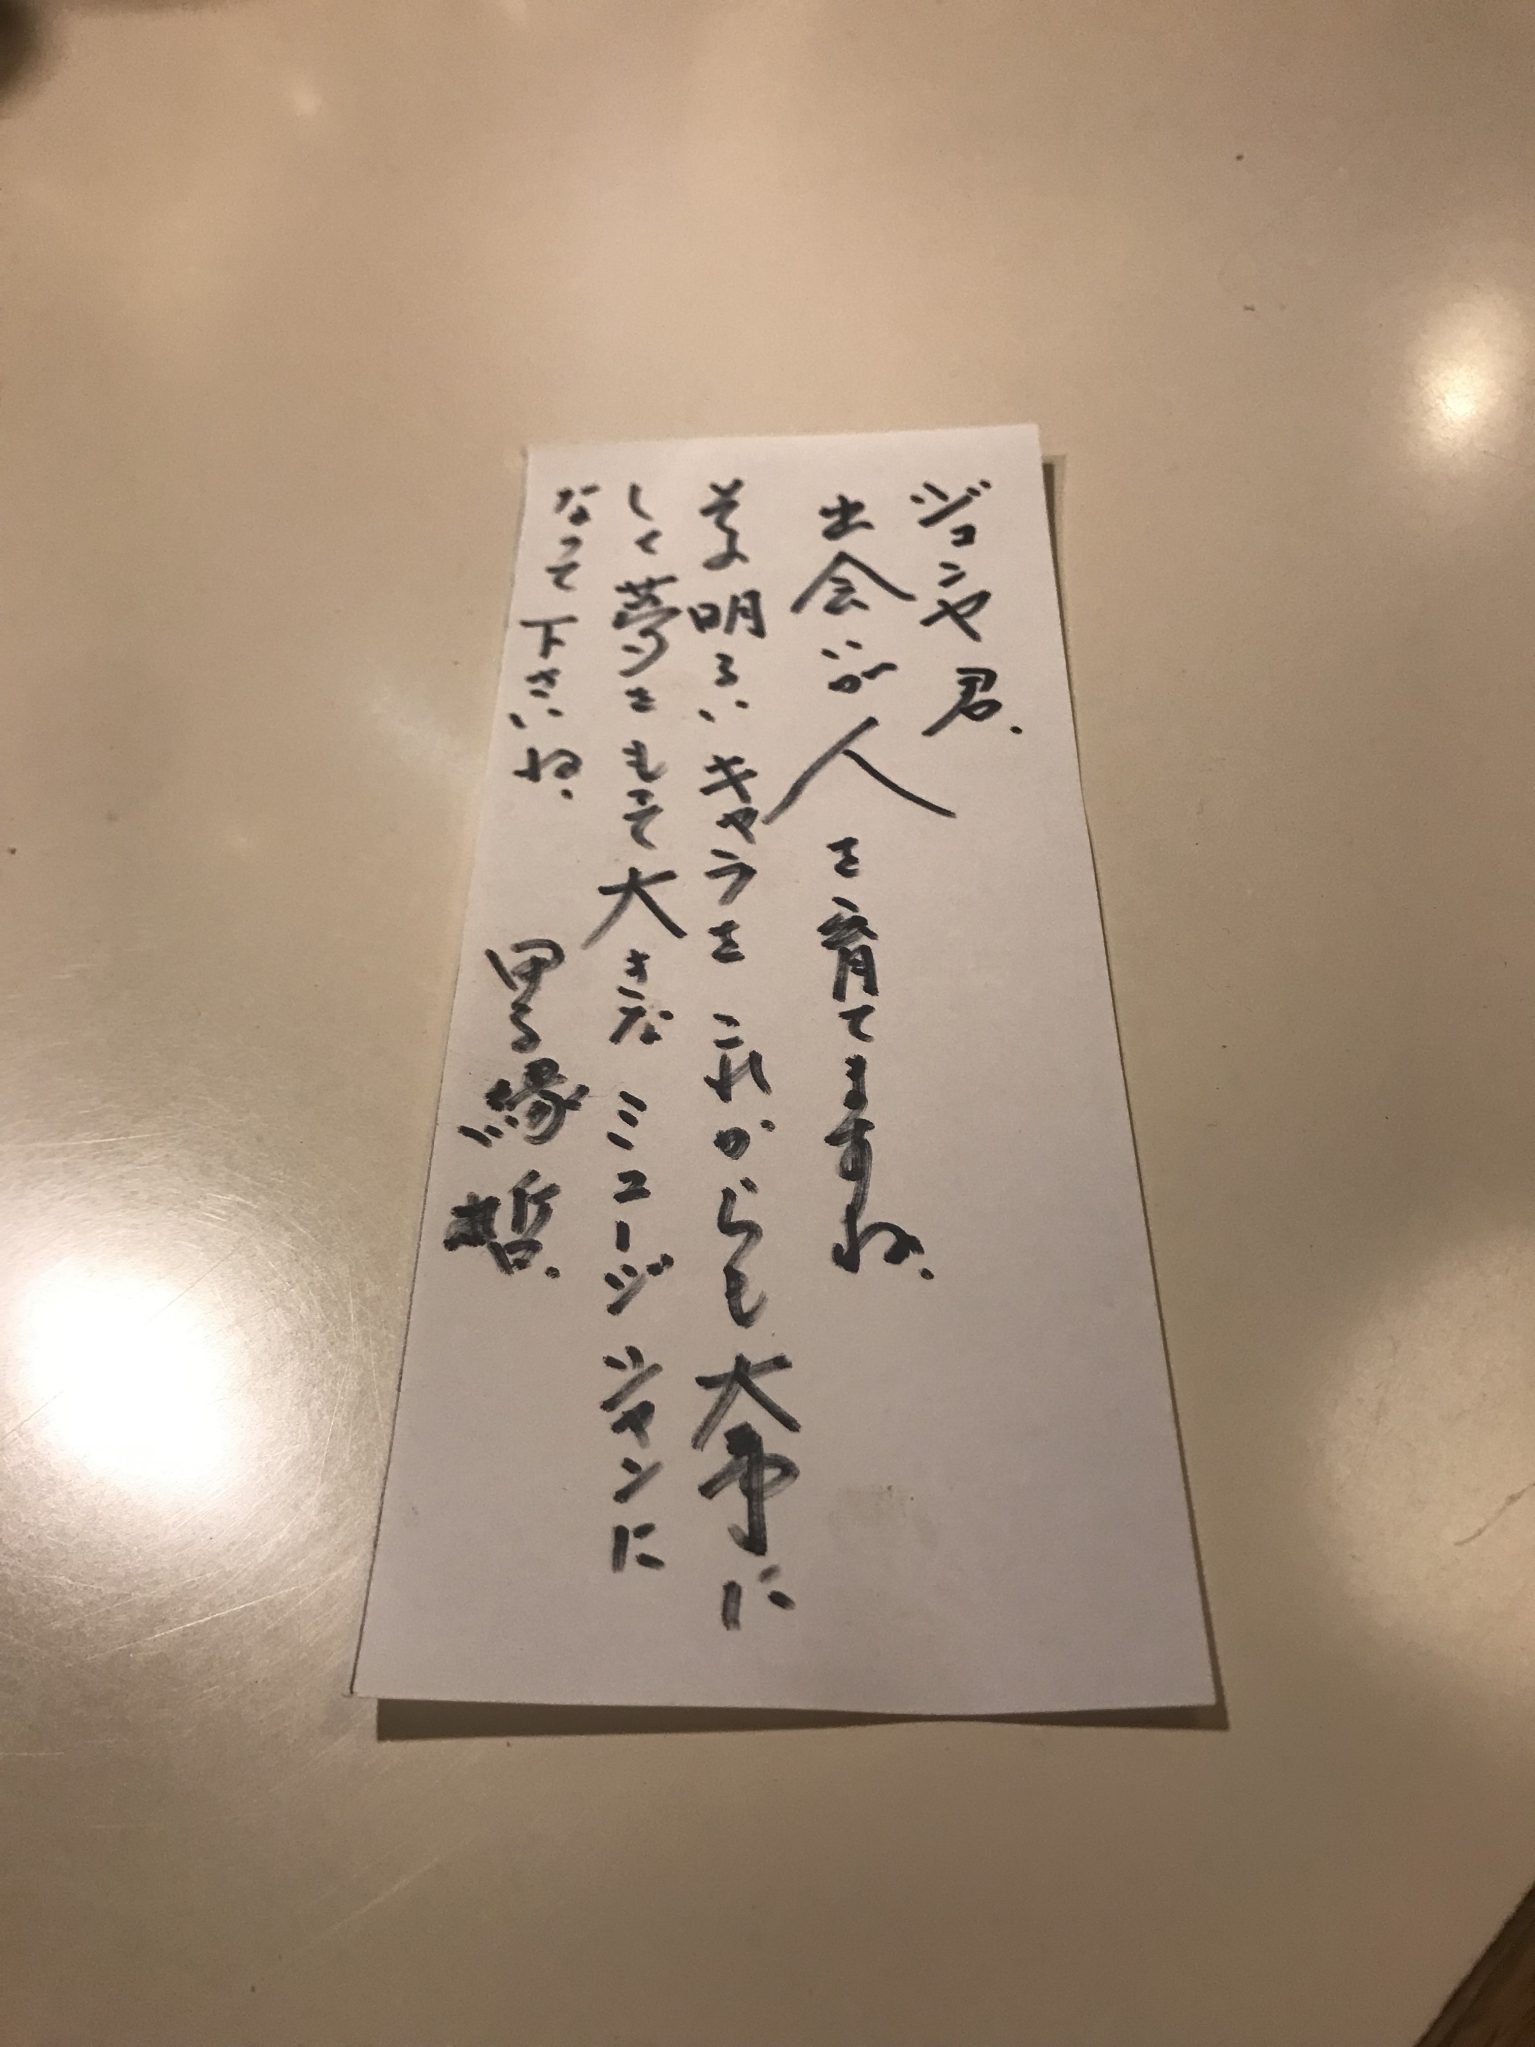 ジョンヤ君.
出会いが人を育てますね.
その明るいキャラをこれからも大事に
しく夢をもって大きなミュージシャンに
なって下さいね.
哲.